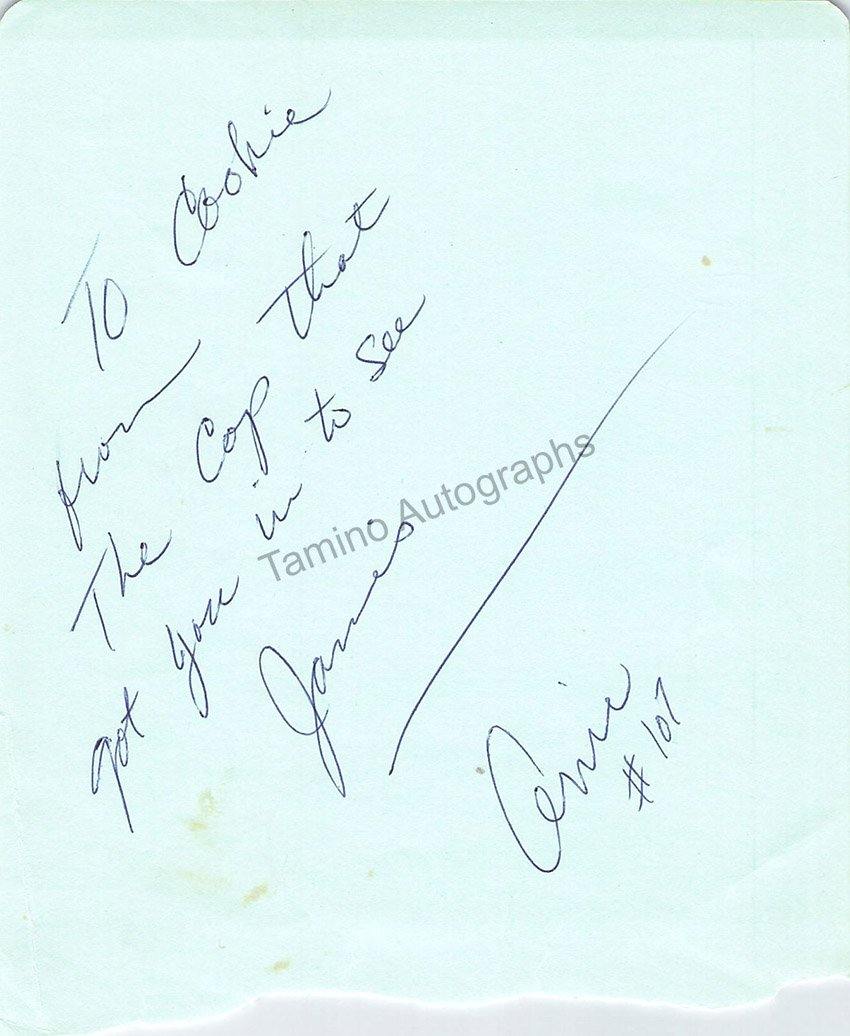 To Cookie
from
The Cop that
got you in to see
James
Ernie
#107
Tamino Autographs